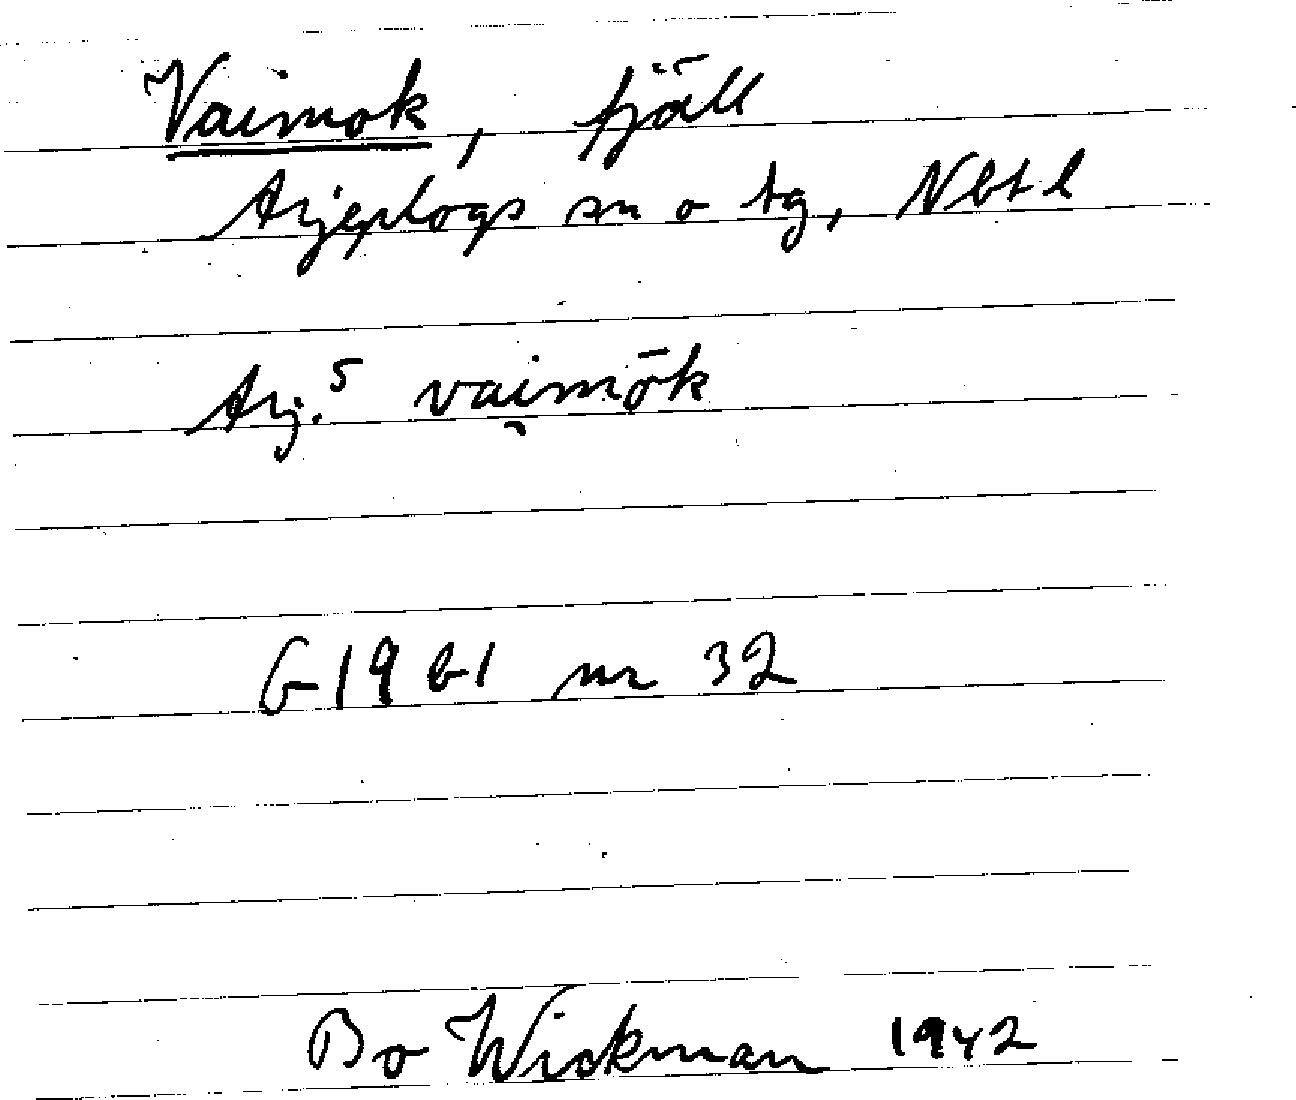 Vaimok, fjäll
Arjeplogs sn o tg, Nbt l
Arj.⁵ vai̯mōk
G 19 b1 nr 32
Bo Wickman 1942